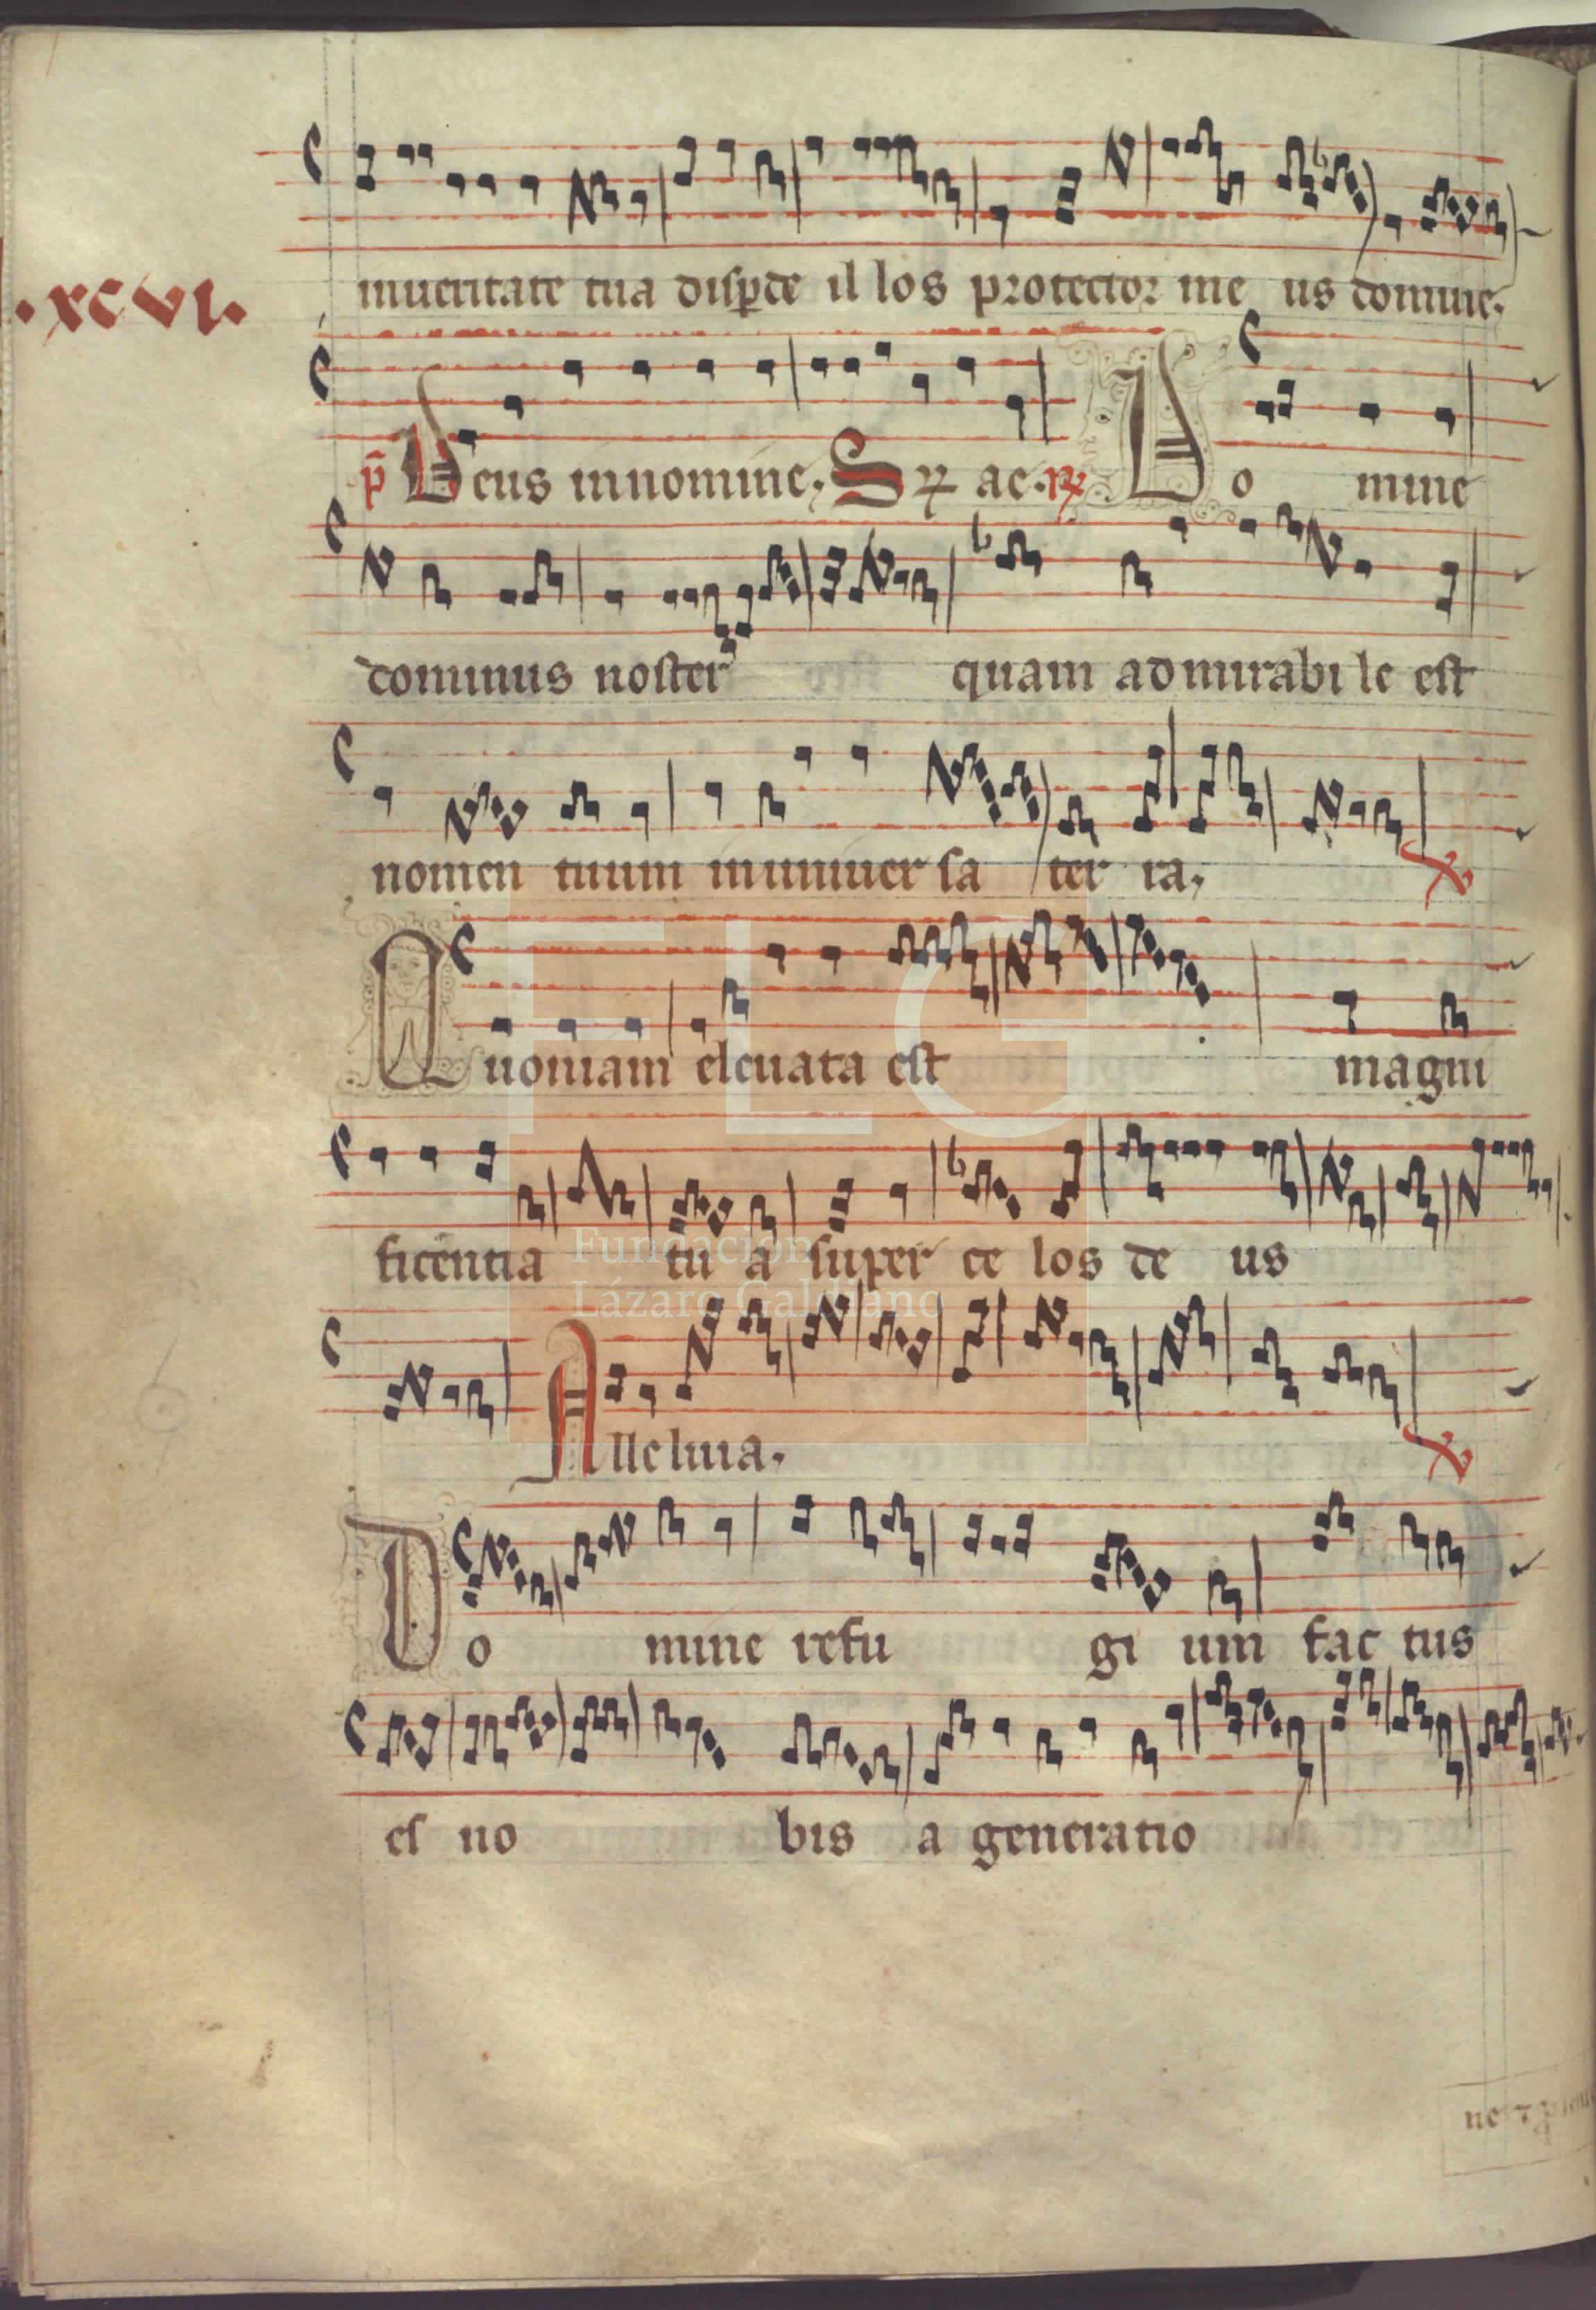 .xcvi.
inueritate tua disp̱de il los protector me us domine.
p̄ Deus innomine. S R ae. R Do mine
dominus noster quam admirabi le est
nomen tuum inuniuer sa ter ra.
V
Quoniam eleuata est magni
ficentia tu a super ce los de us
Fundación
Lázaro Galdiano
FLG
Alleluia.
V
Do mine refu gi um fac tus
es no bis a generatio